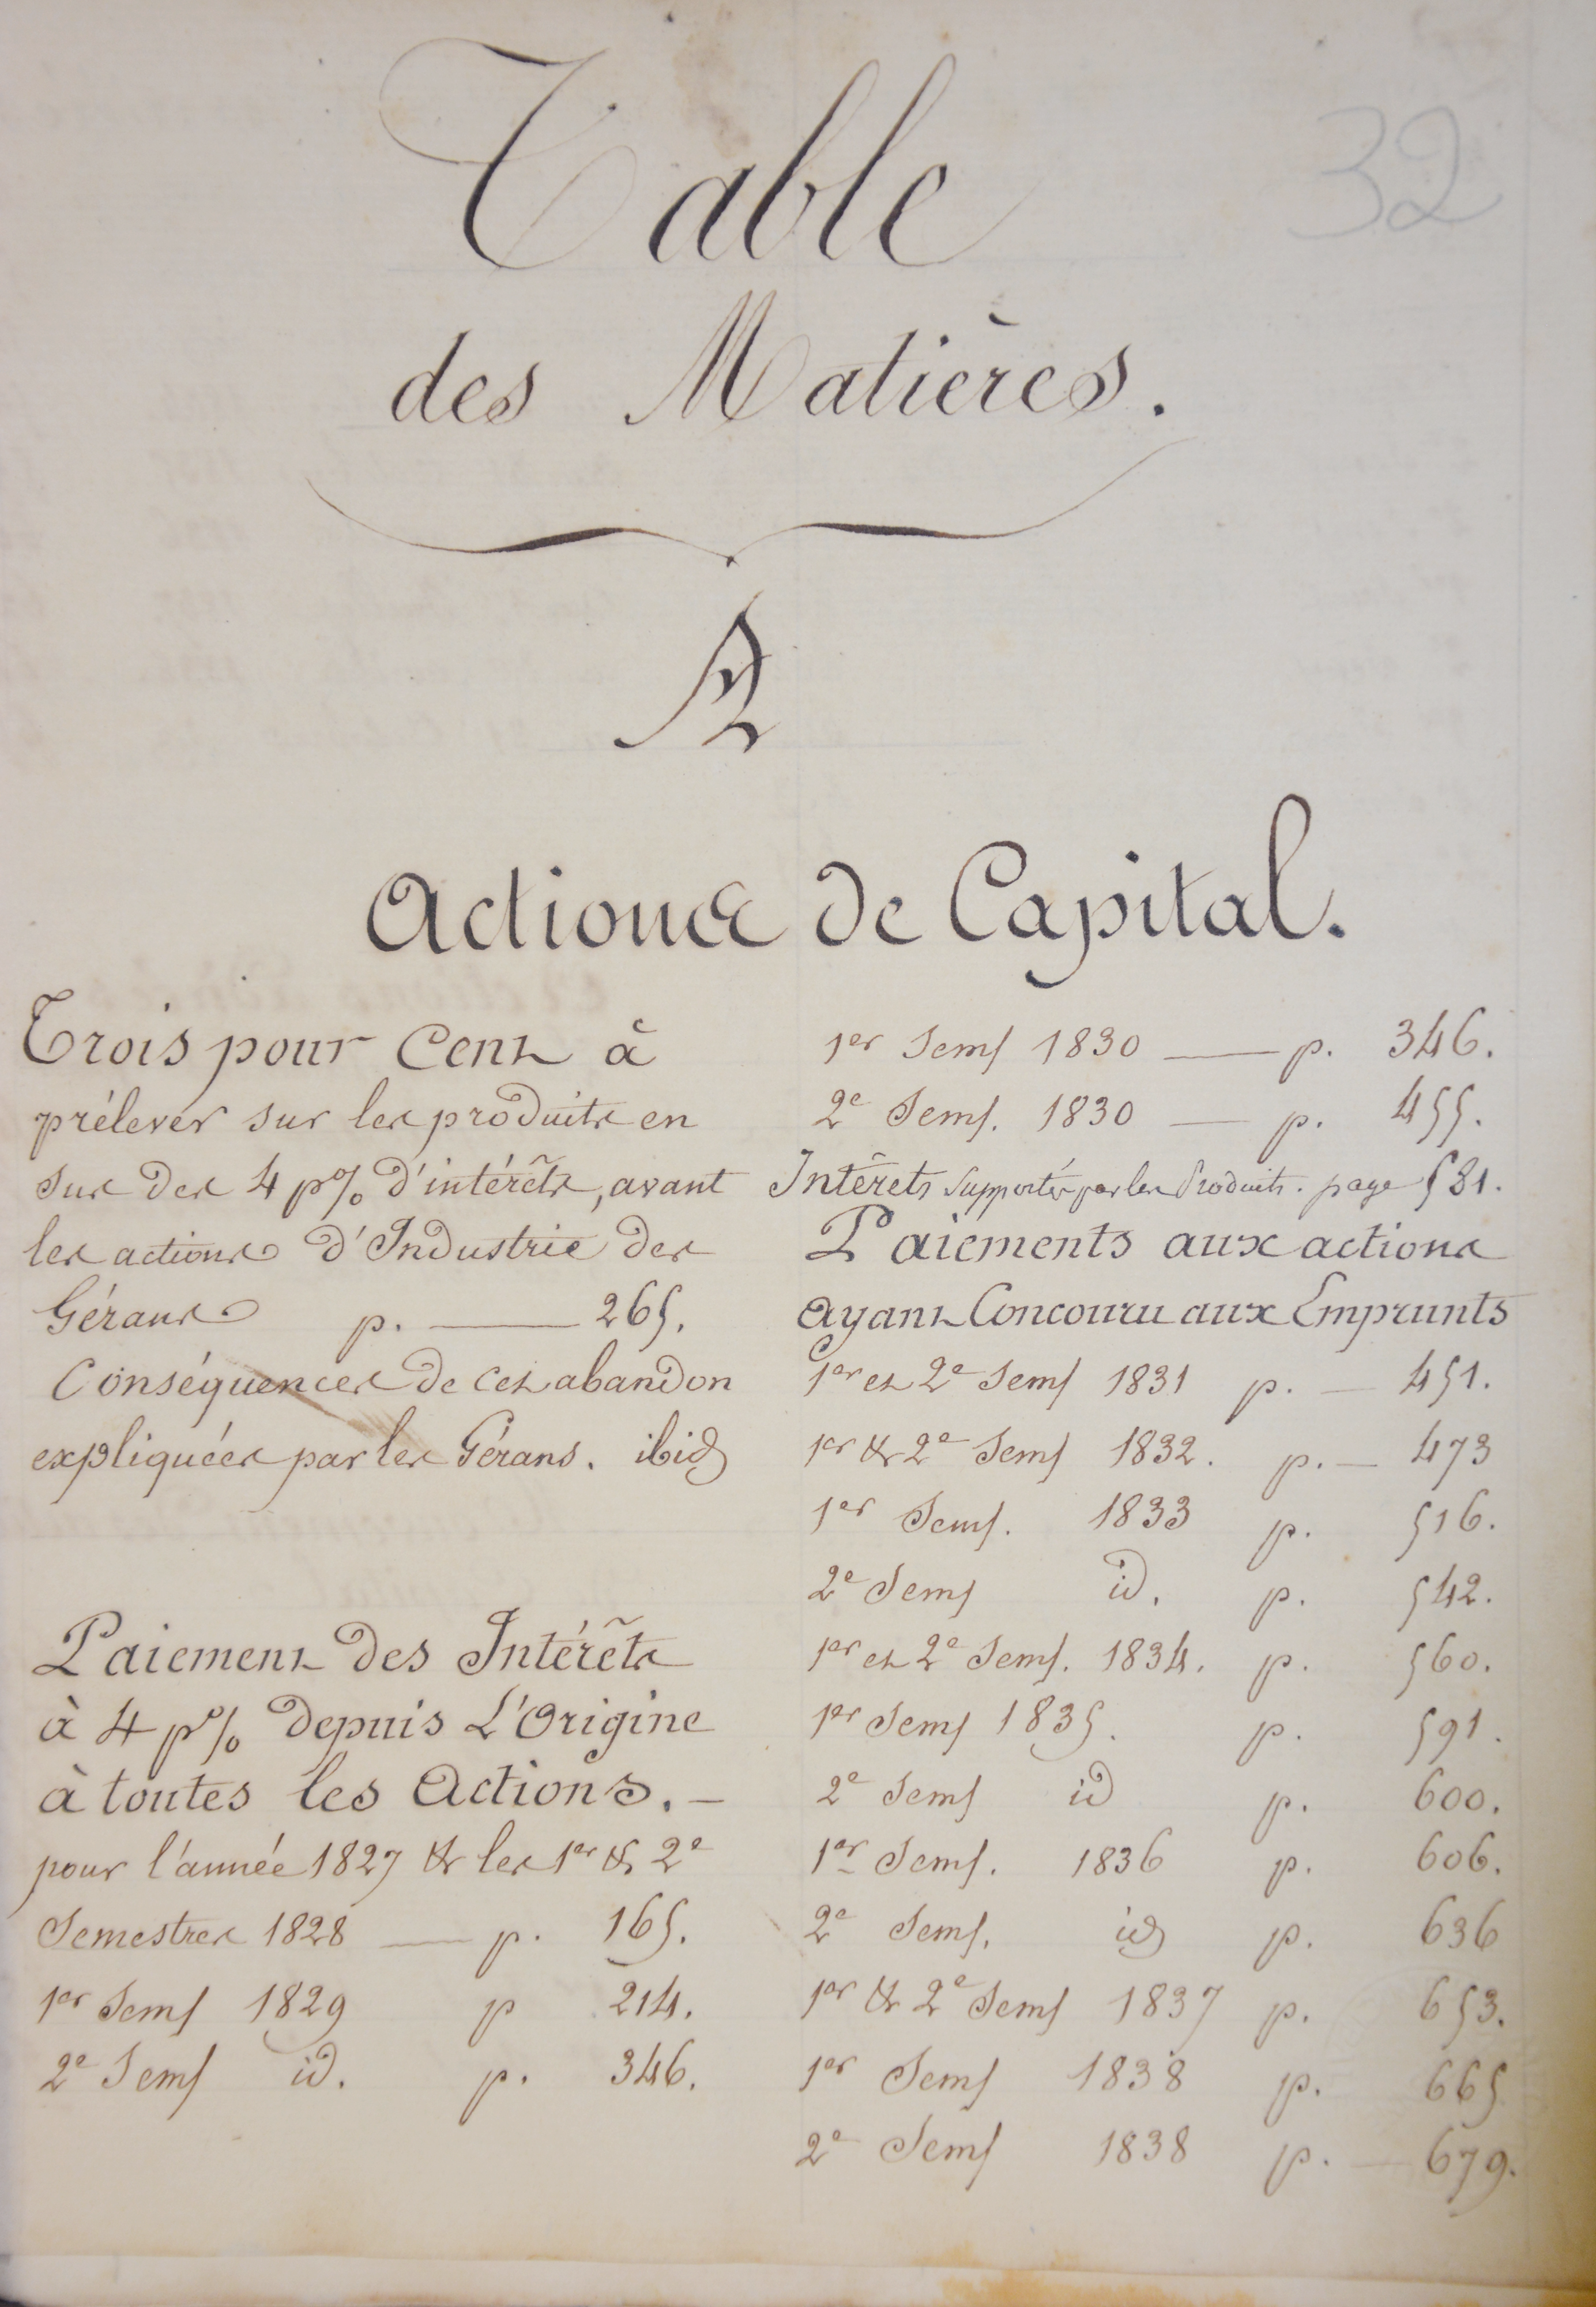 32
Table
des Matières.
A
Actions de Capital.
Trois pour Cent à
prélever sur les produits en
sus des 4 p% d'intérêts, avant
les actions d'Industrie des
Gérans p. — 265.
Conséquences de cet abandon
expliquées par les Gérans. ibid
Paiement des Intérêts
à 4 p% depuis L'Origine
à toutes les Actions. —
pour l'année 1827 & les 1er & 2e
Semestres 1828 — p. 165.
1er Sems 1829 p 214.
2e Sems id. p. 346.
1er Sems 1830 — p. 346.
2e Sems. 1830 — p. 455.
Intérets supportés par les Produits. page 581.
Paiements aux actions
ayant Concouru aux Emprunts
1er et 2e Sems 1831 p. — 451.
1er & 2e Sems 1832. p. — 473
1er Sems. 1833 p. 516.
2e Sems id. p. 542.
1er et 2e Sems. 1834. p. 560.
1er Sems 1835. p. 591.
2e Sems id p. 600.
1er Sems. 1836 p. 606.
2e Sems. id p. 636
1er & 2e Sems 1837 p. 653.
1er Sems 1838 p. 665
2e Sems 1838 p. — 679.